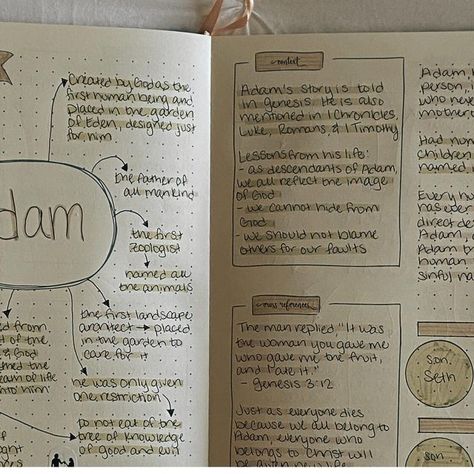 Created by God as the
first human being and
placed in the garden
of Eden, designed just
for him
the father of
all mankind
dam
the first
zoologist
named all
the animals
the first landscape
architect → placed
in the garden to
care for it
he was only given
one restriction
Do not eat of the
tree of knowledge
of good and evil
ed from
of the
& God
med the
eam of life
into him
context
Adam's story is told
in Genesis. He is also
mentioned in 1 Chronicles,
Luke, Romans, & 1 Timothy
Lessons from his life:
- as descendants of Adam,
we all reflect the image
of God
- we cannot hide from
God
- we should not blame
others for our faults
cross references
The man replied "It was
the woman you gave me
who gave me the fruit,
and I ate it."
- Genesis 3:12
Just as everyone dies
because we all belong to
Adam, everyone who
belongs to Christ will
be given new life
Adam i
person, i
who neve
mother o
Had num
children
named,
Every hu
has ever
direct de
Adam,
Adam b
human
sinful na
son
Seth
son